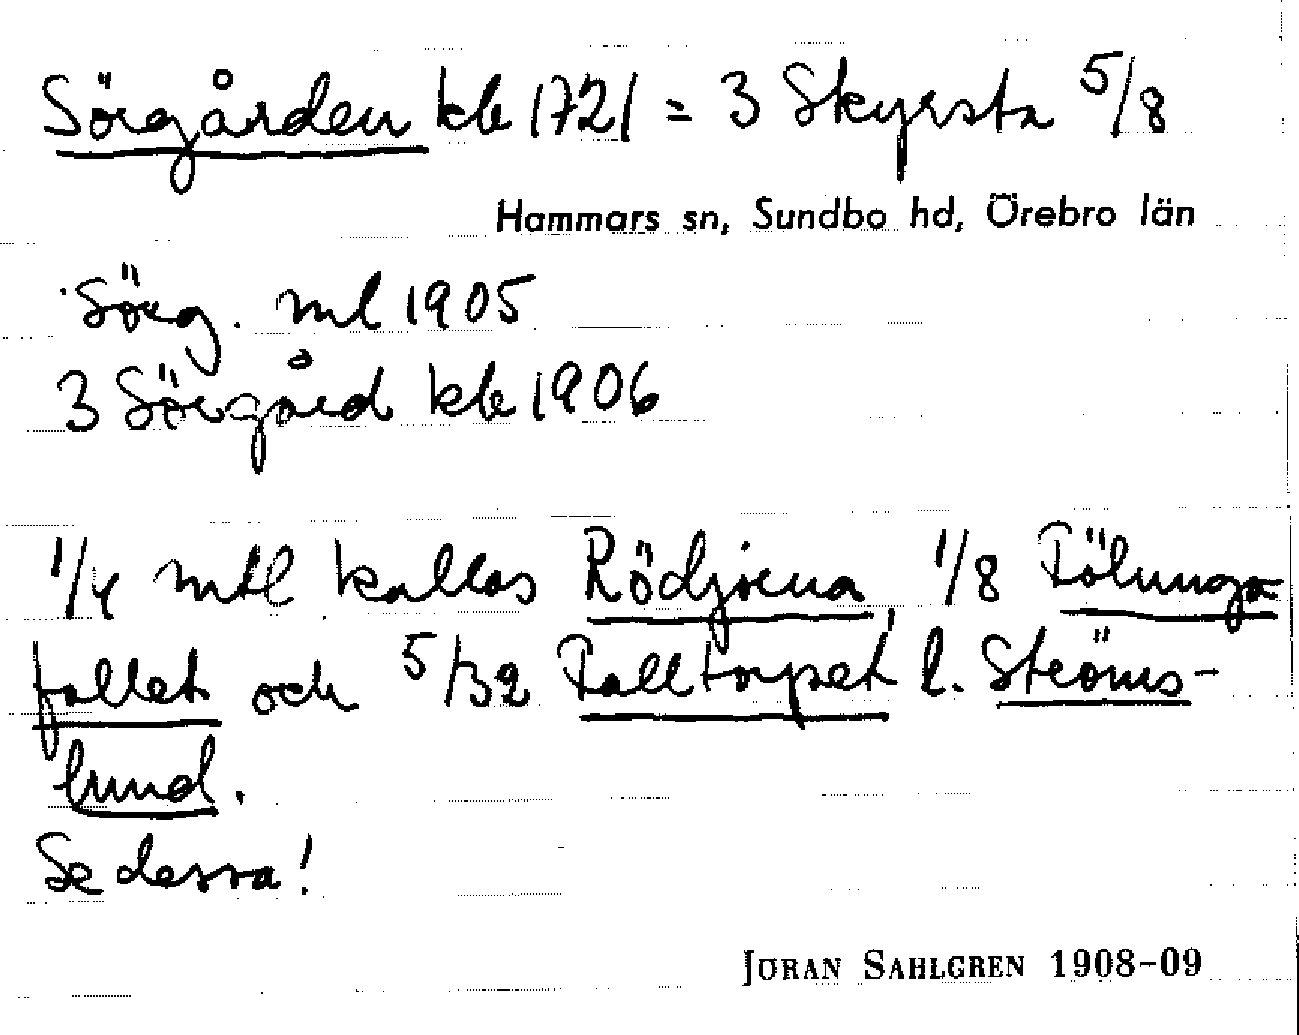 Sörgården kb 1721 = 3 Skyrsta 5/8
Hammars sn, Sundbo hd, Örebro län
Sörg. ml 1905
3 Sörgård kb 1906
1/4 mtl kallas Rödjorna, 1/8 Tölunga-
fallet och 5/32 Talltorpet l. Ströms-
lund.
Se dessa!
JÖRAN SAHLGREN 1908-09